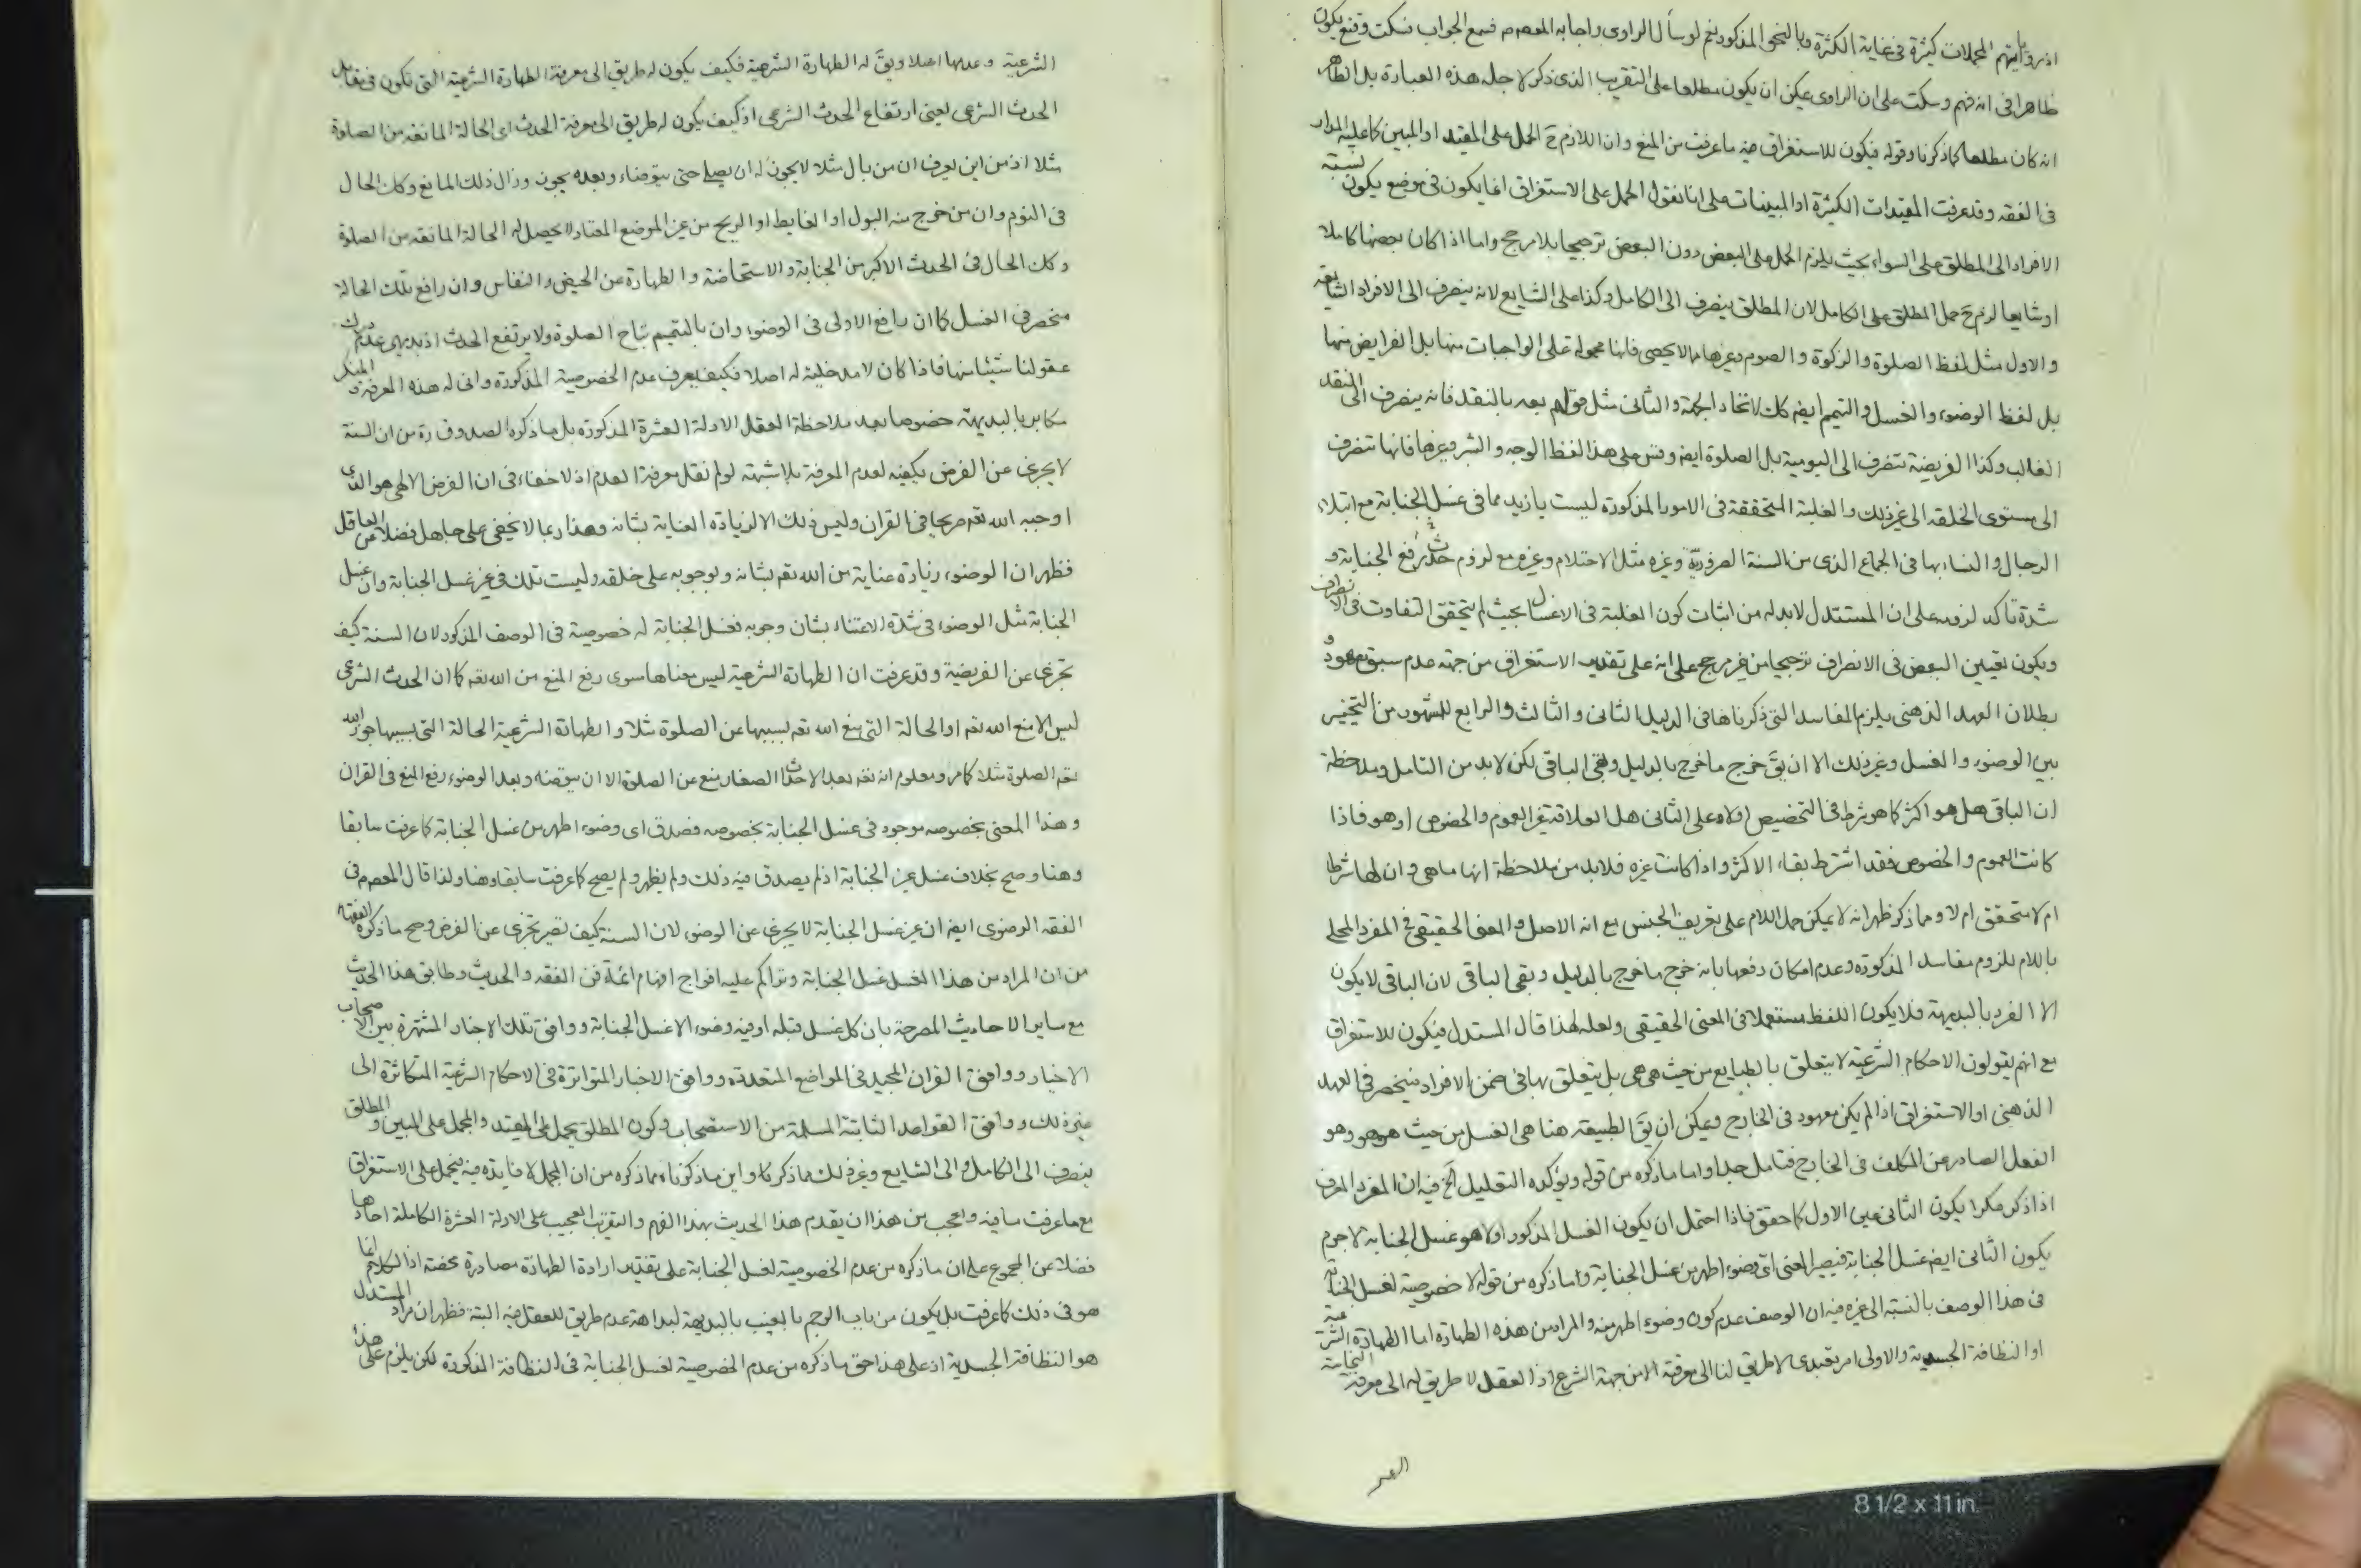 اذ رواياتهم المجملات كثيرة في غاية الكثرة وبالنحو المذكور نعم لو سأل الراوي واجابه المعصوم فسمع الجواب فسكت وقنع يكون
ظاهرا في انه فهم وسكت على ان الراوي يمكن ان يكون مطلعا على التقريب الذي ذكر لاجله هذه العبارة بل الظاهر
انه كان مطلعا كما ذكرنا وقوله فيكون للاستغراق فيه ما عرفت من المنع وان اللازم ح الحمل على المقيد او المبين كما عليه المدار
في الفقه وقد عرفت المقيدات الكثيرة او المبينات على انا نقول الحمل على الاستغراق انما يكون في موضع يكون نسبة
الافراد الى المطلق على السواء بحيث يلزم الحمل على البعض دون البعض ترجيحا بلا مرجح واما اذا كان بعضها كاملا
او شايعا لزم ح حمل المطلق على الكامل لان المطلق ينصرف الى الكامل وكذا على الشايع لانه ينصرف الى الافراد الشايعة
والاول مثل لفظ الصلوة والزكوة والصوم وغيرها مما لا يحصى فانها محمولة على الواجبات منها بل الفرايض منها
بل لفظ الوضوء والغسل والتيمم ايضا كك لاتحاد الجهة والثاني مثل قولهم بعه بالنقد فانه ينصرف الى النقد
الغالب وكذا الفريضة تنصرف الى اليومية بل الصلوة ايضا وقس على هذا لفظ الوجه والشبر وغيرها فانها تنصرف
الى مستوى الخلقه الى غير ذلك والغلبة المتحققة في الامور المذكورة ليست بازيد مما في غسل الجنابة مع ابتلاء
الرجال والنساء بها في الجماع الذي من السنة الضرورية وغيره مثل الاحتلام وغيره مع لزوم حدث رفع الجنابة و
شدة تأكد لزومه على ان المستدل لا بد له من اثبات كون الغلبة في الاغسال بحيث لم يتحقق التفاوت في الانصراف
ويكون تعيين البعض في الانصراف ترجيحا من غير مرجح على انه على تقدير الاستغراق من جهة عدم سبق معهود و
بطلان العهد الذهني يلزم المفاسد التي ذكرناها في الدليل الثاني والثالث والرابع للشهود من التخيير
بين الوضوء والغسل وغير ذلك الا ان يق خرج ما خرج بالدليل وبقي الباقي لكن لا بد من التامل وملاحظة
ان الباقي هل هو اكثر كما هو شرط في التخصيص ام لا وعلى الثاني هل العلاقة غير العموم والخصوص او هو فاذا
كانت العموم والخصوص فقد اشترط بقاء الاكثر واذا كانت غيره فلا بد من ملاحظة انها ما هي وان لها شرطا
ام لا متحقق ام لا ومما ذكر ظهر انه لا يمكن حمل اللام على تعريف الجنس مع انه الاصل والمعنى الحقيقي في المفرد المحلى
باللام للزوم مفاسد المذكورة وعدم امكان دفعها بانه خرج ما خرج بالدليل وبقي الباقي لان الباقي لا يكون
الا الفرد بالبديهة فلا يكون اللفظ مستعملا في المعنى الحقيقي ولعله لهذا قال المستدل فيكون للاستغراق
مع انهم يقولون الاحكام الشرعية لا يتعلق بالطبايع من حيث هي هي بل يتعلق بها في ضمن الافراد فينحصر في العهد
الذهني او الاستغراق اذا لم يكن معهود في الخارج ويمكن ان يق الطبيعة هنا هي الغسل من حيث هو هو وهو
الفعل الصادر عن المكلف في الخارج فتامل جدا واما ما ذكره من قوله ويؤكده التعليل الخ فيه ان المفرد المعرف
اذا ذكر مكررا يكون الثاني عين الاول كما حقق فاذا احتمل ان يكون الغسل المذكور اولا هو غسل الجنابة لا جرم
يكون الثاني ايضا غسل الجنابة فيصير المعنى اي وضوء اطهر من غسل الجنابة واما ذكره من قوله لا خصوصية لغسل الجنابة
في هذا الوصف بالنسبة الى غيره فيه ان الوصف عدم كون وضوء اطهر منه والمراد من هذه الطهارة اما الطهارة الشرعية
او النظافة الجسدية والاولى امر تعبدي لا طريق لنا الى معرفته الا من جهة الشرع اذ العقل لا طريق له الى معرفة النجاسة
الشرعية وعدمها اصلا وبق له الطهارة الشرعية فكيف يكون له طريق الى معرفة الطهارة الشرعية التي تكون في مقابل
الحدث الشرعي يعني ارتفاع الحدث الشرعي اذ كيف يكون له طريق الى معرفة الحدث اي الحالة المانعة من الصلوة
مثلا اذ من اين يعرف ان من بال مثلا لا يجوز له ان يصلي حتى يتوضاء وبعده يجوز وزال ذلك المانع وكك الحال
في النوم وان من خرج منه البول او الغايط او الريح من غير الموضع المعتاد لا يحصل له الحالة المانعة من الصلوة
وكك الحال في الحدث الاكبر من الجنابة والاستحاضة والطهارة من الحيض والنفاس وان رافع تلك الحالة
منحصر في الغسل كما ان رافع الاولى في الوضوء وان بالتيمم تباح الصلوة ولا يرتفع الحدث اذ بديهي عدم درك
عقولنا شيئا منها فاذا كان لا مدخلية له اصلا فكيف يعرف عدم الخصوصية المذكورة وانى له هذه المعرفة والمنكر
مكابر بالبديهة خصوصا بعد ملاحظة العقل الادلة العشرة المذكورة بل ما ذكره الصدوق ره من ان السنة
لا يجزي عن الفرض يكفيه لعدم المعرفة بلا شبهة لو لم نقل معرفة العدم اذ لا خفاء في ان الفرض الالهي هو الذي
اوجبه الله تعه صريحا في القران وليس ذلك الا لزيادة العناية بشانه وهذا ربما لا يخفى على جاهل فضلا عن العاقل
فظهر ان الوضوء زيادة عناية من الله تعه بشانه وبوجوبه على خلقه وليست تلك في غير غسل الجنابة وان غسل
الجنابة مثل الوضوء في شدة الاعتناء بشان وجوبه فغسل الجنابة له خصوصية في الوصف المذكور لان السنة كيف
تجزي عن الفريضة وقد عرفت ان الطهارة الشرعية ليس معناها سوى رفع المنع من الله تعه كما ان الحدث الشرعي
ليس الا منع الله تعه او الحالة التي منع الله تعه بسببها عن الصلوة مثلا والطهارة الشرعية الحالة التي بسببها جوز الله
تعه الصلوة مثلا كما مر ومعلوم انه تعه بعد الاحداث الصغار منع عن الصلوة الا ان يتوضه وبعد الوضوء رفع المنع في القران
وهذا المعنى بخصوصه موجود في غسل الجنابة بخصوصه فصدق اى وضوء اطهر من غسل الجنابة كما عرفت سابقا
وهنا وصح بخلاف غسل غير الجنابة اذ لم يصدق فيه ذلك ولم يظهر ولم يصح كما عرفت سابقا وهنا ولذا قال المعصوم في
الفقه الرضوي ايضا ان غير غسل الجنابة لا يجزي عن الوضوء لان السنة كيف تصير تجزي عن الفرض وصح ما ذكره الفقهاء
من ان المراد من هذا الغسل غسل الجنابة وتراكم عليه افواج افهام ائمة فن الفقه والحديث وطابق هذا الحديث
مع ساير الاحاديث المصرحة بان كل غسل قبله او فيه وضوء الا غسل الجنابة ووافق تلك الاخبار المشتهرة بين الاصحاب
الاخبار ووافق القران المجيد في المواضع المتعددة ووافق الاخبار المتواترة في الاحكام الشرعية المتكاثرة الى
غير ذلك ووافق القواعد الثابتة المسلمة من الاستصحاب وكون المطلق يحمل على المقيد والمجمل على المبين والمطلق
ينصرف الى الكامل والى الشايع وغير ذلك مما ذكرنا واين ما ذكرناه مما ذكره من ان المجمل لا فايدة فيه فيحمل على الاستغراق
مع ما عرفت ما فيه واعجب من هذا ان يقدم هذا الحديث بهذا الفهم والتقريب العجيب على الادلة العشرة الكاملة احادها
فضلا عن المجموع على ان ما ذكره من عدم الخصوصية لغسل الجنابة على تقدير ارادة الطهارة مصادرة محضة اذ الكلام انما
هو في ذلك كما عرفت بل يكون من باب الرجم بالغيب بالبديهة لبداهة عدم طريق للعقل فيه البتة فظهر ان مراد المستدل
هو النظافة الجسدية اذ على هذا حق ما ذكره من عدم الخصوصية لغسل الجنابة في النظافة المذكورة لكن يلزم على هذا
8 1/2 x 11 in.